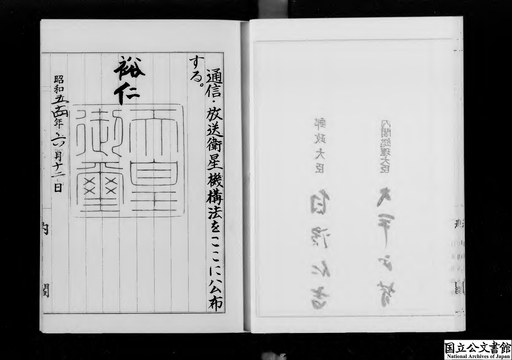 通信・放送衛星機構法をここに公布
する。
裕仁
天皇
御璽
昭和五十四年六月十二日
内閣
内閣総理大臣
郵政大臣
国立公文書館
National Archives of Japan